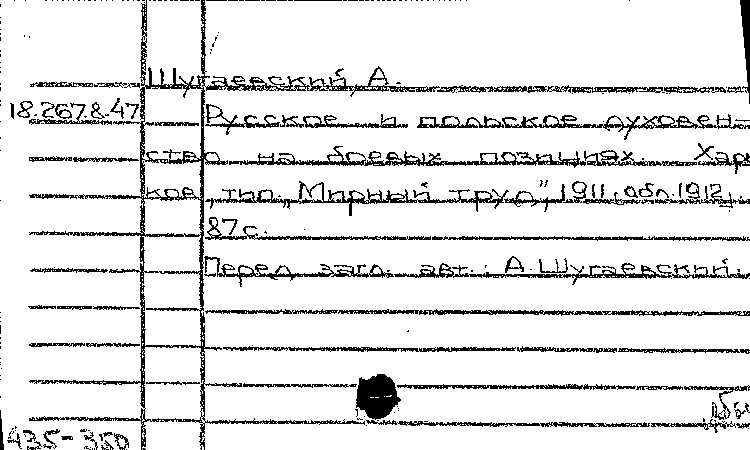 Шугаевский, А.
18.267.8.47 Русское и польское духовен-
ство на боевых позициях. Харь
ков, тип. „Мирный труд", 1911, обл. 1912.
87 с.
Перед загл. авт.: А. Шугаевский.
435-350